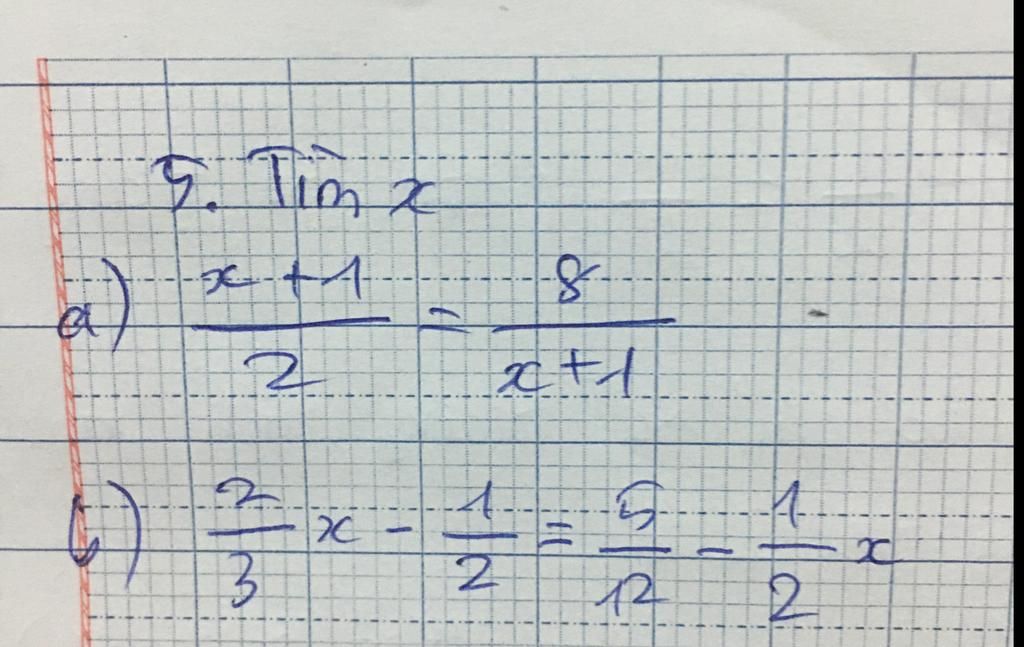 5. Tìm x
a) \frac{x+1}{2} = \frac{8}{x+1}
b) \frac{2}{3} x - \frac{1}{2} = \frac{5}{12} - \frac{1}{2} x